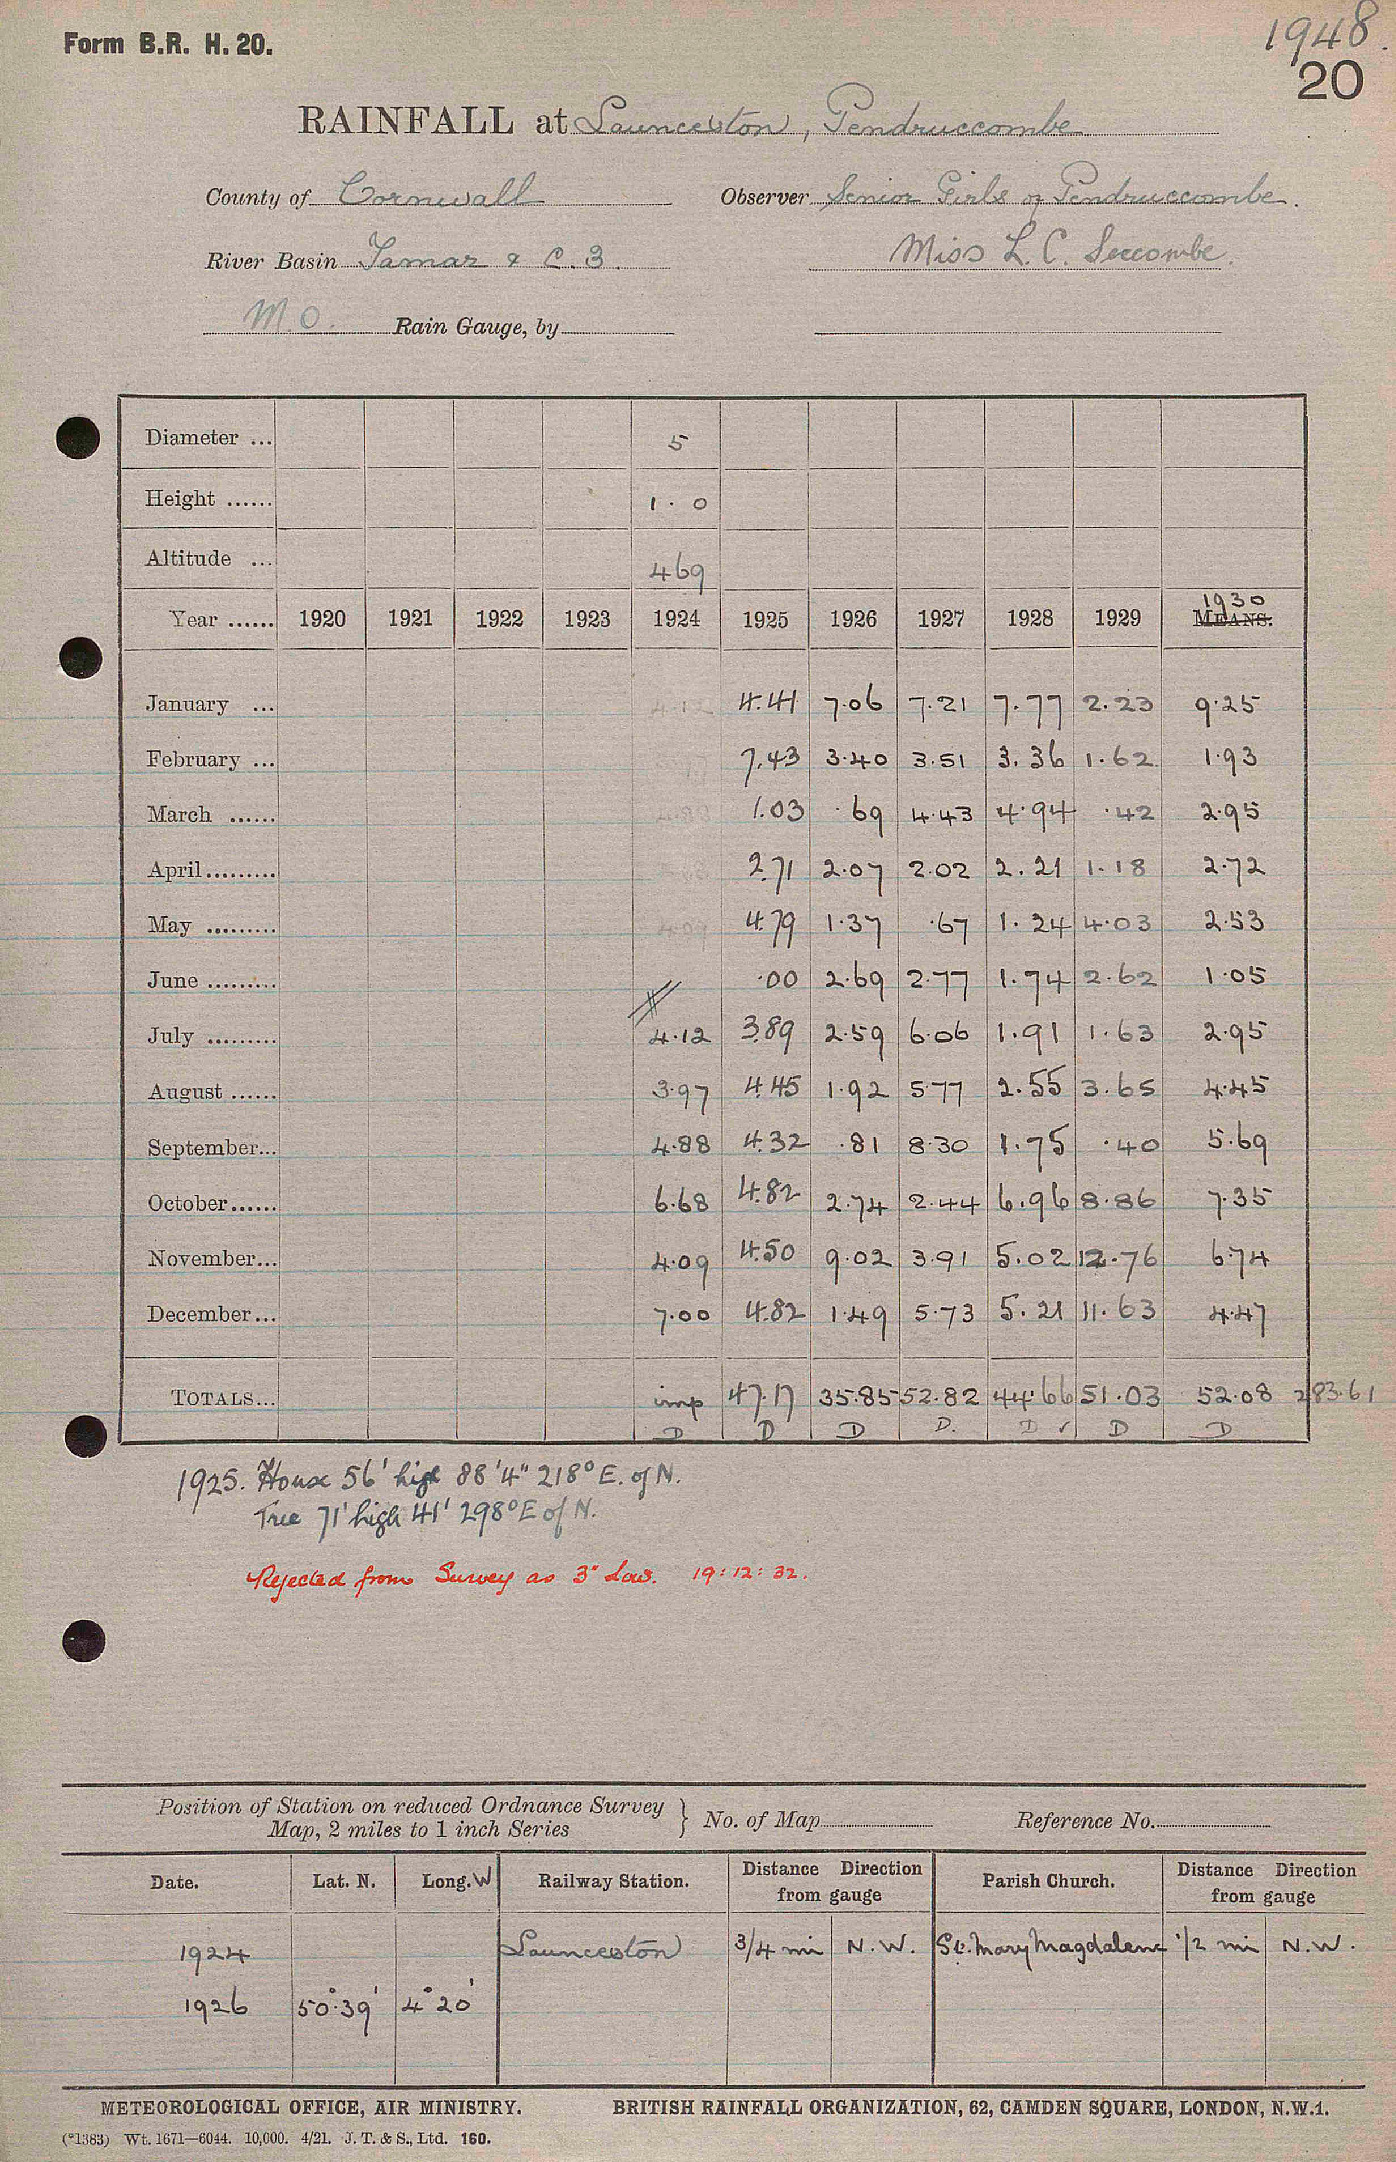 Form B.R. H. 20.
1948.
20
RAINFALL at Launceston, Pendruccombe
County of Cornwall Observer Senior Girls of Pendruccombe.
River Basin Tamar & C. 3. Miss L. C. Seccombe.
M.O. Rain Gauge, by
Diameter ... 5
Height ...... 1 . 0
Altitude ... 469
Year ...... 1920 1921 1922 1923 1924 1925 1926 1927 1928 1929 1930 MEANS.
January ... 4.41 7.06 7.21 7.77 2.23 9.25
February ... 7.43 3.40 3.51 3.36 1.62 1.93
March ...... 1.03 .69 4.43 4.94 .42 2.95
April ......... 2.71 2.07 2.02 2.21 1.18 2.72
May ......... 4.79 1.37 .67 1.24 4.03 2.53
June ......... .00 2.69 2.77 1.74 2.62 1.05
July ......... 4.12 3.89 2.59 6.06 1.91 1.63 2.95
August ...... 3.97 4.45 1.92 5.77 2.55 3.65 4.45
September... 4.88 4.32 .81 8.30 1.75 .40 5.69
October...... 6.68 4.82 2.74 2.44 6.96 8.86 7.35
November... 4.09 4.50 9.02 3.91 5.02 12.76 6.74
December... 7.00 4.82 1.49 5.73 5.21 11.63 4.47
TOTALS... imp 47.17 35.85 52.82 44.66 51.03 52.08 283.61
D D D D. D ✓ D D
1925. House 56' high 88'4" 218° E. of N.
Tree 71' high 41' 298° E of N.
Rejected from Survey as 3" low. 19:12:32.
Position of Station on reduced Ordnance Survey
Map, 2 miles to 1 inch Series } No. of Map Reference No.
Date. Lat. N. Long. W Railway Station. Distance Direction from gauge Parish Church. Distance Direction from gauge
1924 Launceston 3/4 mi N.W. St. Mary Magdalene 1/2 mi N.W.
1926 50° 39' 4° 20'
METEOROLOGICAL OFFICE, AIR MINISTRY. BRITISH RAINFALL ORGANIZATION, 62, CAMDEN SQUARE, LONDON, N.W.1.
(*1383) Wt. 1671—6044. 10,000. 4/21. J. T. & S., Ltd. 160.